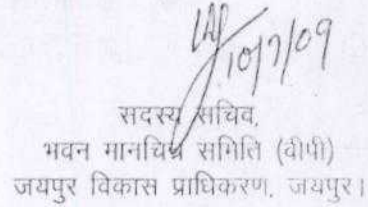 10/7/09
सदस्य सचिव,
भवन मानचित्र समिति (बीपी)
जयपुर विकास प्राधिकरण, जयपुर।